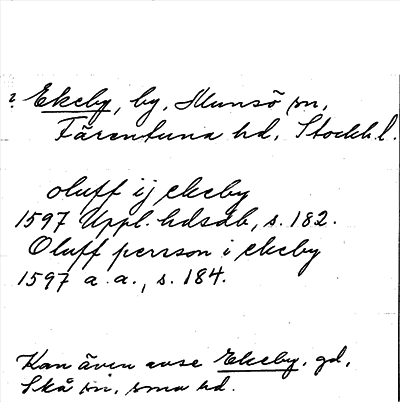 ? Ekeby, by, Munsö sn,
Färentuna hd, Stockh.l.
oluff ij ekeby
1597 Uppl. hdsdb, s. 182.
Oluff persson i ekeby
1597 a. a., s. 184.
Kan även avse Ekeby, gd,
Skå sn, sma hd.